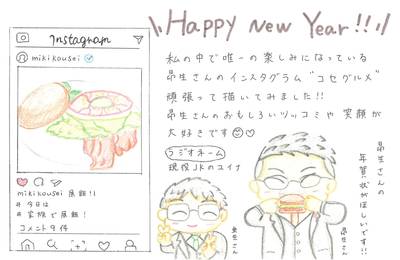 HAPPY NEW YEAR!!
Instagram
mikikousei
mikikousei 昼飯!!
#今日は
#家族で昼飯!
コメント9件
私の中で唯一の楽しみになっている
昴生さんのインスタグラム"コセグルメ"
頑張って描いてみました!!
昴生さんのおもしろいツッコミや笑顔が
大好きです
ラジオネーム
現役JKのユイナ
亜生さん
昴生さん
昴生さんの
年賀状がほしいです!!